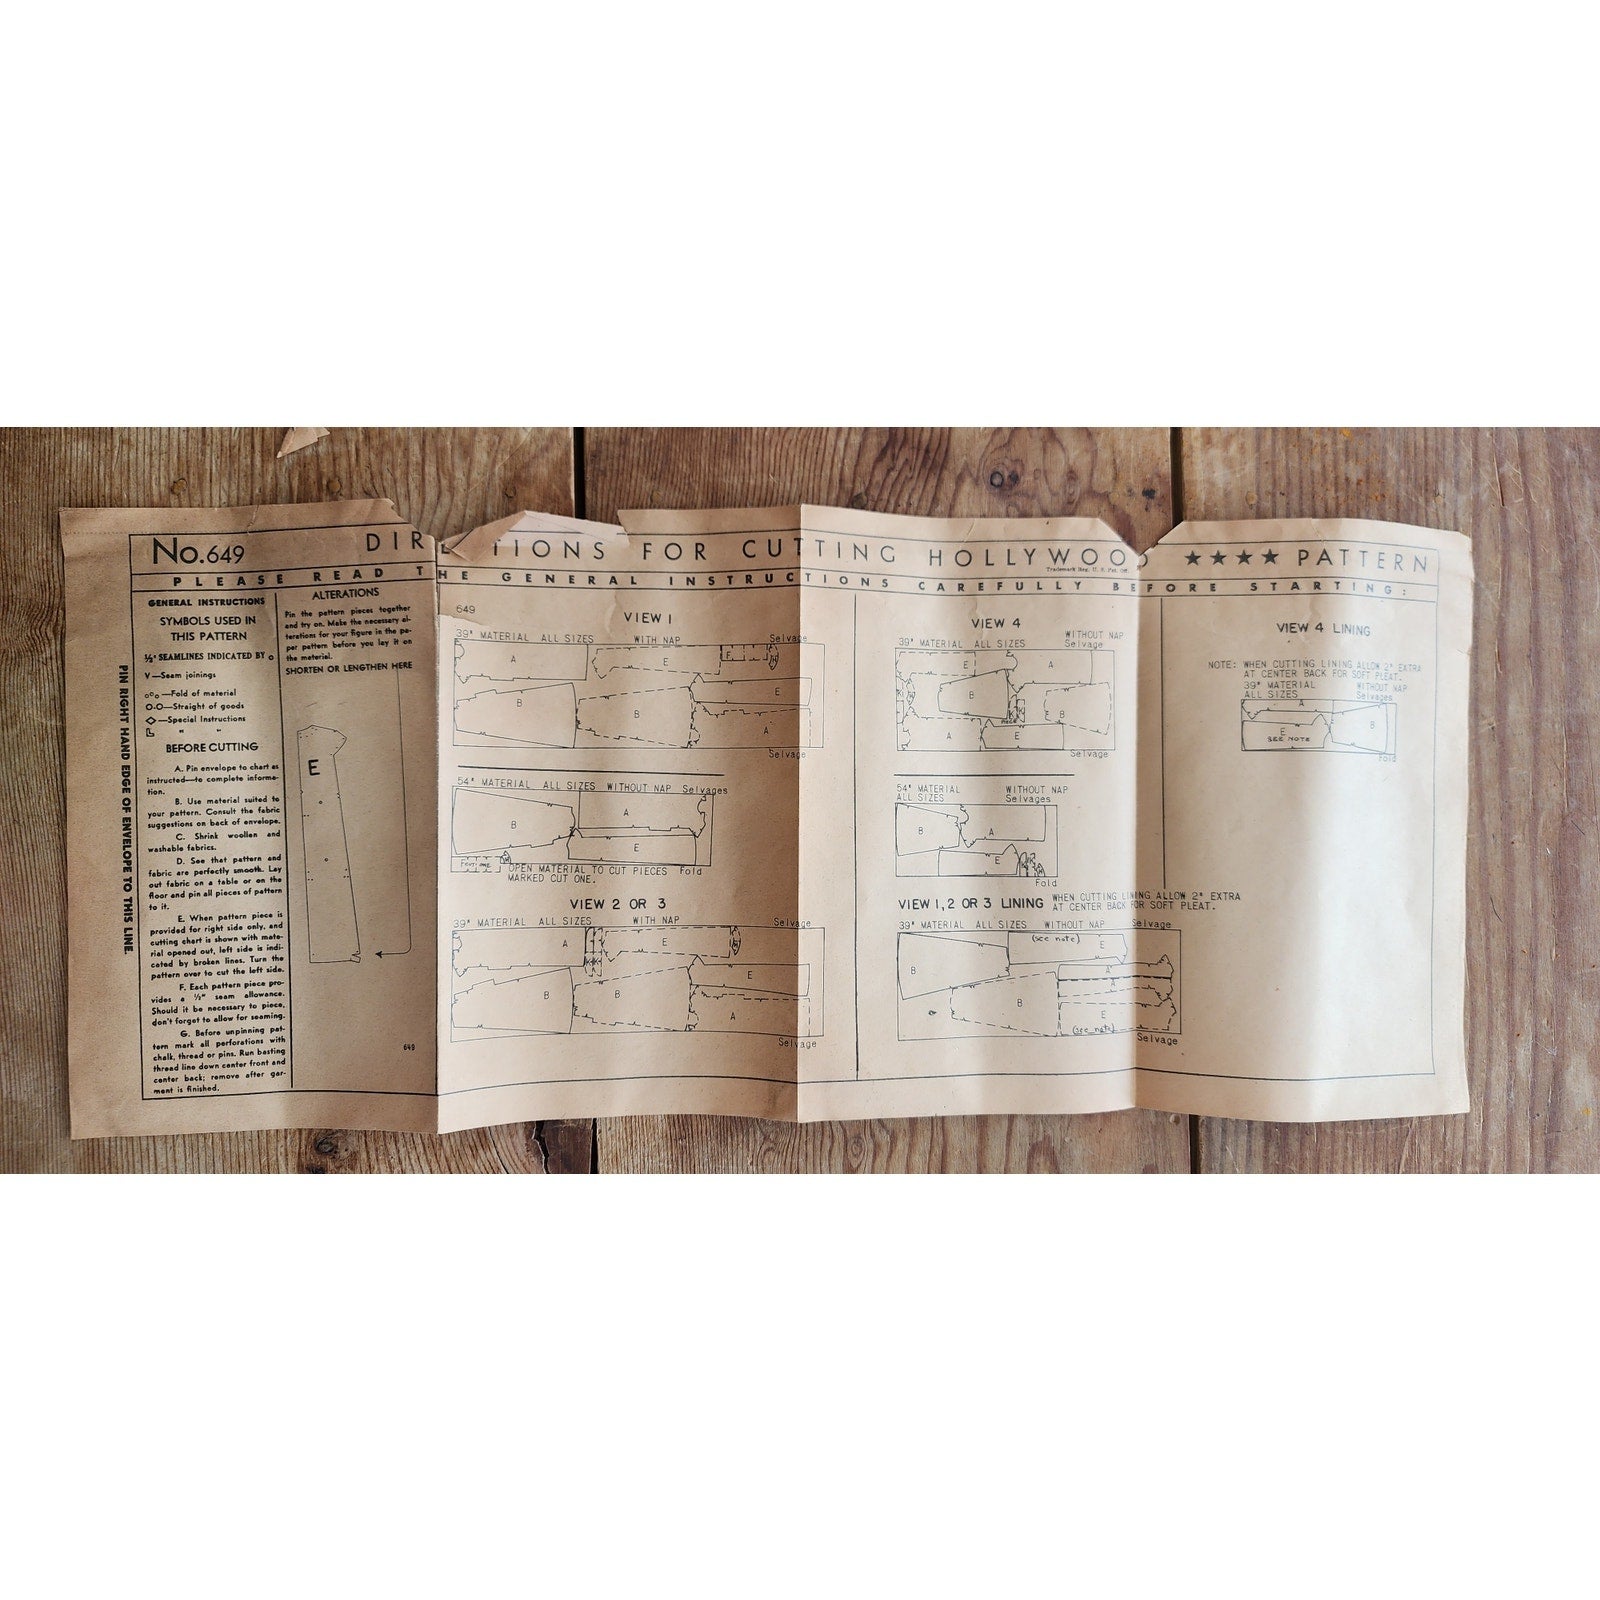 No.649 DIRE TIONS FOR CUTTING HOLLYWOOD ★★★★ PATTERN
Trademark Reg. U. S. Pat. Off.
PLEASE READ THE GENERAL INSTRUCTIONS CAREFULLY BEFORE STARTING:
PIN RIGHT HAND EDGE OF ENVELOPE TO THIS LINE.
GENERAL INSTRUCTIONS
SYMBOLS USED IN
THIS PATTERN
½" SEAMLINES INDICATED BY o
V—Seam joinings
o°o—Fold of material
O-O—Straight of goods
◇—Special Instructions
L " "
BEFORE CUTTING
A. Pin envelope to chart as
instructed—to complete informa-
tion.
B. Use material suited to
your pattern. Consult the fabric
suggestions on back of envelope.
C. Shrink woollen and
washable fabrics.
D. See that pattern and
fabric are perfectly smooth. Lay
out fabric on a table or on the
floor and pin all pieces of pattern
to it.
E. When pattern piece is
provided for right side only, and
cutting chart is shown with mate-
rial opened out, left side is indi-
cated by broken lines. Turn the
pattern over to cut the left side.
F. Each pattern piece pro-
vides a ½" seam allowance.
Should it be necessary to piece,
don't forget to allow for seaming.
G. Before unpinning pat-
tern mark all perforations with
chalk, thread or pins. Run basting
thread line down center front and
center back; remove after gar-
ment is finished.
ALTERATIONS
Pin the pattern pieces together
and try on. Make the necessary al-
terations for your figure in the pa-
per pattern before you lay it on
the material.
SHORTEN OR LENGTHEN HERE
E
649
649
VIEW 1
39" MATERIAL ALL SIZES WITH NAP Selvage
A E F
B B E
A
Selvage
54" MATERIAL ALL SIZES WITHOUT NAP Selvages
B A
E
OPEN MATERIAL TO CUT PIECES Fold
MARKED CUT ONE.
VIEW 2 OR 3
39" MATERIAL ALL SIZES WITH NAP Selvage
A E
B B E
A
Selvage
VIEW 4
WITHOUT NAP
39" MATERIAL ALL SIZES Selvage
E A
B B
E
Selvage
54" MATERIAL WITHOUT NAP
ALL SIZES Selvages
B A
E
Fold
VIEW 1,2 OR 3 LINING WHEN CUTTING LINING ALLOW 2" EXTRA
AT CENTER BACK FOR SOFT PLEAT.
39" MATERIAL ALL SIZES WITHOUT NAP Selvage
(see note) E
B A
A
B E
(see note)
Selvage
VIEW 4 LINING
NOTE: WHEN CUTTING LINING ALLOW 2" EXTRA
AT CENTER BACK FOR SOFT PLEAT.
39" MATERIAL WITHOUT NAP
ALL SIZES Selvages
A B
E
SEE NOTE
Fold